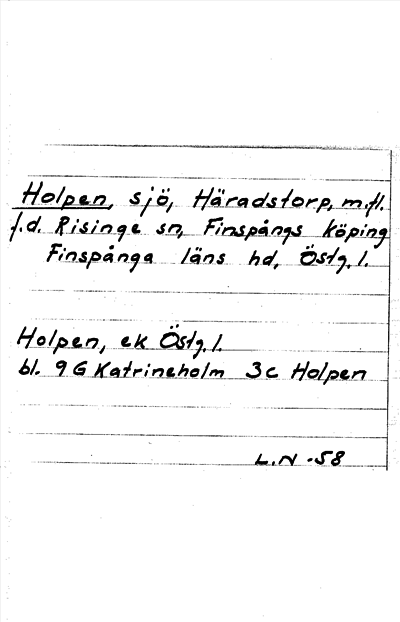 Holpen, sjö, Häradstorp, m.fl.
f.d. Risinge sn, Finspångs köping
Finspånga läns hd, Östg. l.
Holpen, ek Östg. l.
bl. 9 G Katrineholm 3c Holpen
L.N -58